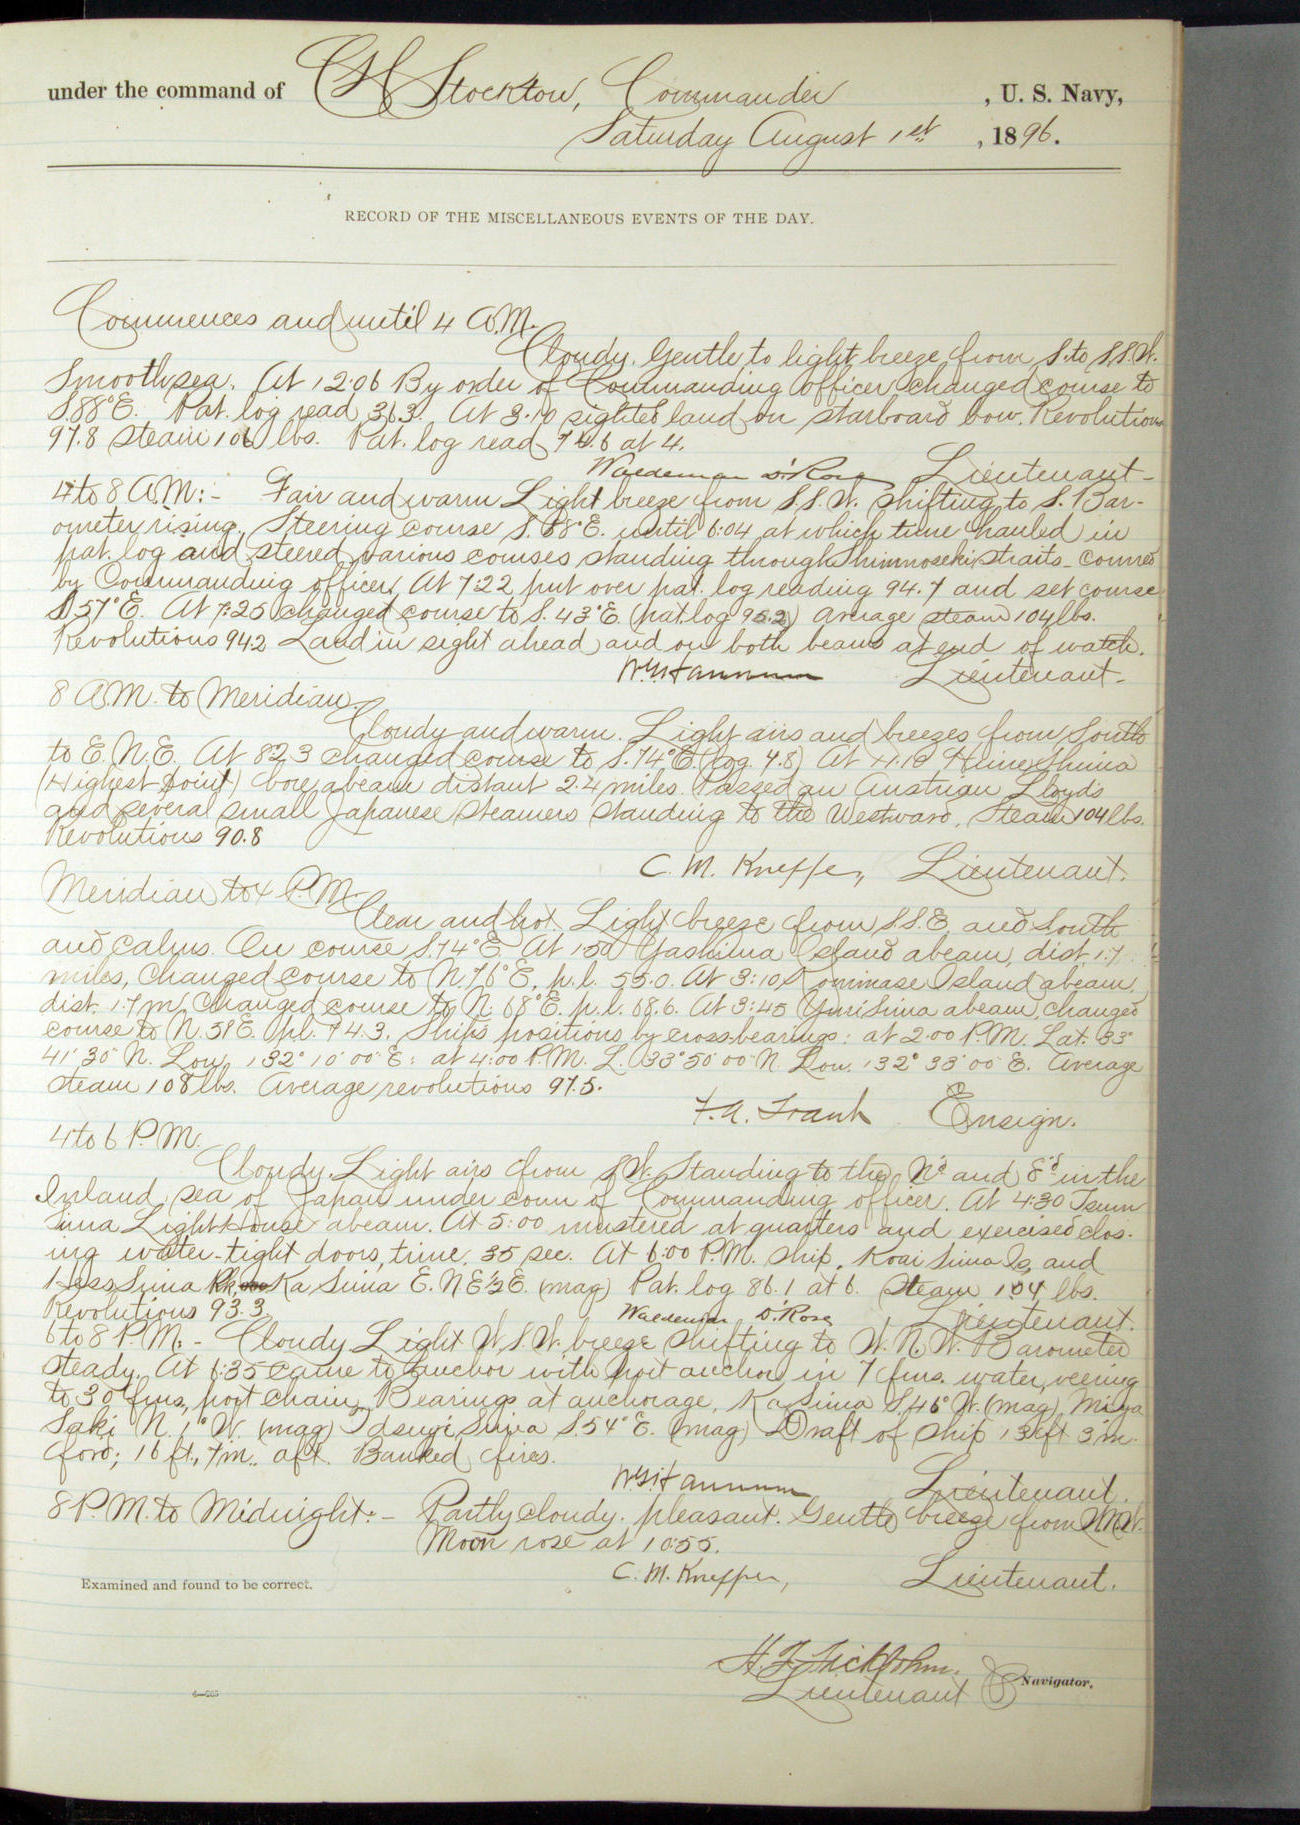 under the command of C H Stockton, Commander , U. S. Navy,
Saturday August 1st , 1896.
RECORD OF THE MISCELLANEOUS EVENTS OF THE DAY.
Commences and until 4 A.M.
Cloudy. Gentle to light breeze from S. to S.S.W.
Smooth sea. At 12.06 By order of Commanding officer changed course to
S.88°E. Pat. log read 36.3. At 3.10 sighted land on starboard bow. Revolutions
97.8 Steam 106 lbs. Pat. log read 74.6 at 4.
Waldemar D'Rose Lieutenant-
4 to 8 A.M:- Fair and warm Light breeze from S.S.W. shifting to S. Bar-
ometer rising. Steering course S.88°E. until 6:04 at which time hauled in
pat. log and steered various courses standing through Shimnoseki straits - conned
by Commanding officer. At 7:22 put over pat. log reading 94.7 and set course
S.57°E. At 7:25 changed course to S. 43°E. (pat. log 95.2) average steam 104 lbs.
Revolutions 94.2 Land in sight ahead and on both beams at end of watch.
W.G. Hannum Lieutenant-
8 A.M. to Meridian
Cloudy and warm. Light airs and breezes from South
to E.N.E. At 8:23 changed course to S.74°E. (log 4.8) At 11.18 Hime Shima
(Highest point) bore abeam distant 2.4 miles. Passed an Austrian Lloyds
and several small Japanese steamers standing to the Westward. Steam 104 lbs.
Revolutions 90.8
C. M. Knepper, Lieutenant.
Meridian to 4 P.M.
Clear and hot. Light breeze from S.S.E. and South
and calms. On course S.74°E. At 1:50 Yashima Island abeam, dist. 1.7
miles, changed course to N.76°E. p.l. 55.0. At 3:10 Kominase Island abeam,
dist. 1.7 m, changed course to N. 68°E. p.l. 68.6. At 3:45 Yuri Sima abeam, changed
course to N. 51 E. p.l. 74.3. Ship's positions by cross-bearings: at 2.00 P.M. Lat. 33°
41' 30" N. Lon. 132° 10' 00" E: at 4:00 P.M. L. 33° 50' 00" N. Lon. 132° 33' 00" E. Average
steam 108 lbs. Average revolutions 97.5.
F. A. Traut Ensign.
4 to 6 P.M.
Cloudy. Light airs from S.W. Standing to the N'd and E'd in the
Inland sea of Japan under conn of Commanding officer. At 4:30 Tsuru
Sima Light House abeam. At 5:00 mustered at quarters and exercised clos-
ing water-tight doors, time 35 sec. At 6:00 P.M. ship, Koai Sima Is. and
Sima Rk. Ka Sima E.N.E½E. (mag) Pat. log 86.1 at 6. Steam 104 lbs.
Revolutions 93.3
Waldemar D'Rose Lieutenant.
6 to 8 P.M:- Cloudy Light W.S.W. breeze shifting to W.N.W. Barometer
steady. At 6:35 came to anchor with port anchor in 7 fms. water, veering
to 30 fms, port chain. Bearings at anchorage. Ka Sima S.46°W. (mag) Misya
Saki N. 1°W. (mag) Idsugi Sima S.54°E. (mag) Draft of ship 13 ft 3 in.
ford; 16 ft, 7 in. aft. Banked fires.
W.G. Hannum Lieutenant.
8 P.M. to Midnight:- Partly cloudy. pleasant. Gentle breeze from WNW.
Moon rose at 10:55.
C. M. Knepper, Lieutenant.
Examined and found to be correct.
Lieutenant & Navigator.